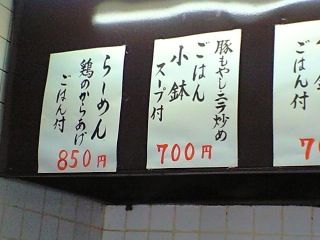 らーめん
鶏のからあげ
ごはん付
850円
豚もやしニラ炒め
ごはん
小鉢
スープ付
700円
ごはん付